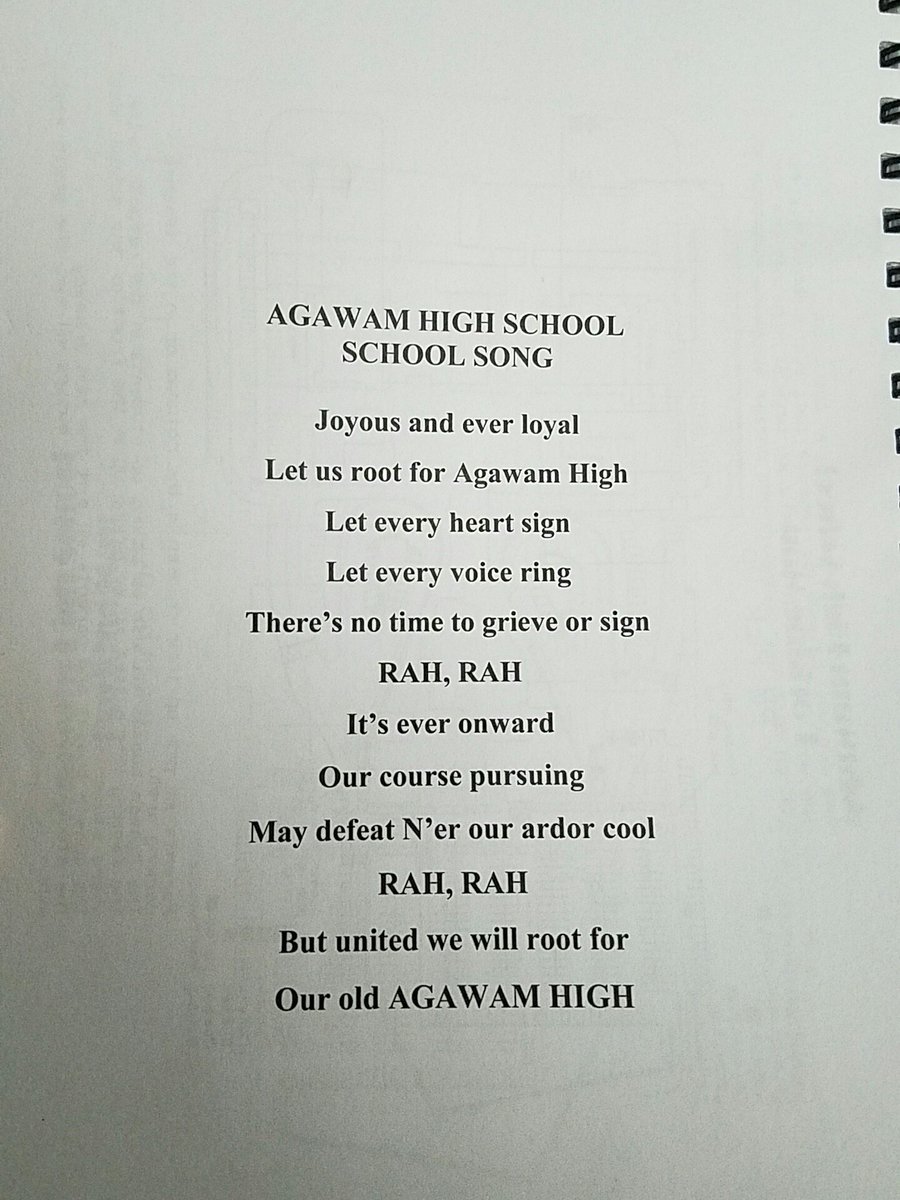 AGAWAM HIGH SCHOOL
SCHOOL SONG
Joyous and ever loyal
Let us root for Agawam High
Let every heart sign
Let every voice ring
There’s no time to grieve or sign
RAH, RAH
It’s ever onward
Our course pursuing
May defeat N’er our ardor cool
RAH, RAH
But united we will root for
Our old AGAWAM HIGH